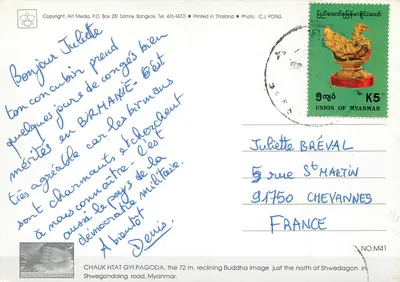 Copyright, Art Media, P.O. Box 281 Samre, Bangkok. Tel. 416-1470 • Printed in Thailand • Photo: C.J. PONG
Bonjour Juliette
ton concubin prend
quelques jours de congés bien
mérités en BIRMANIE. C'est
très agréable car les birmans
sont charmants et cherchent
à nous connaître. C'est
aussi le pays de la
démocratie militaire.
A bientôt
Denis.
ပြည်ထောင်စုမြန်မာနိုင်ငံတော်
၅ကျပ် K5
UNION OF MYANMAR
Juliette BRÉVAL
5 rue St MARTIN
91750 CHEVANNES
FRANCE
NO.M41
CHAUK HTAT GYI PAGODA, the 72 m. reclining Buddha image just the north of Shwedagon in
Shwegondaing road, Myanmar.